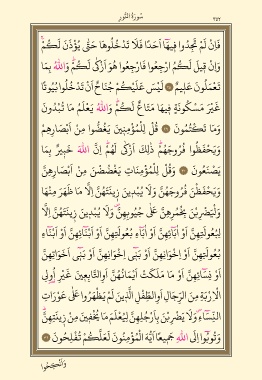 سُورَةُ النُّورِ ٣٥٢
فَاِنْ لَمْ تَجِدُوا ف۪يهَٓا اَحَدًا فَلَا تَدْخُلُوهَا حَتّٰى يُؤْذَنَ لَكُمْۚ
وَاِنْ ق۪يلَ لَكُمُ ارْجِعُوا فَارْجِعُوا هُوَ اَزْكٰى لَكُمْۜ وَاللّٰهُ بِمَا
تَعْمَلُونَ عَل۪يمٌ ۝٢٨ لَيْسَ عَلَيْكُمْ جُنَاحٌ اَنْ تَدْخُلُوا بُيُوتًا
غَيْرَ مَسْكُونَةٍ ف۪يهَا مَتَاعٌ لَكُمْۜ وَاللّٰهُ يَعْلَمُ مَا تُبْدُونَ
وَمَا تَكْتُمُونَ ۝٢٩ قُلْ لِلْمُؤْمِن۪ينَ يَغُضُّوا مِنْ اَبْصَارِهِمْ
وَيَحْفَظُوا فُرُوجَهُمْۜ ذٰلِكَ اَزْكٰى لَهُمْۜ اِنَّ اللّٰهَ خَب۪يرٌ بِمَا
يَصْنَعُونَ ۝٣٠ وَقُلْ لِلْمُؤْمِنَاتِ يَغْضُضْنَ مِنْ اَبْصَارِهِنَّ
وَيَحْفَظْنَ فُرُوجَهُنَّ وَلَا يُبْد۪ينَ ز۪ينَتَهُنَّ اِلَّا مَا ظَهَرَ مِنْهَا
وَلْيَضْرِبْنَ بِخُمُرِهِنَّ عَلٰى جُيُوبِهِنَّۖ وَلَا يُبْد۪ينَ ز۪ينَتَهُنَّ اِلَّا
لِبُعُولَتِهِنَّ اَوْ اٰبَٓائِهِنَّ اَوْ اٰبَٓاءِ بُعُولَتِهِنَّ اَوْ اَبْنَٓائِهِنَّ اَوْ اَبْنَٓاءِ
بُعُولَتِهِنَّ اَوْ اِخْوَانِهِنَّ اَوْ بَن۪ٓي اِخْوَانِهِنَّ اَوْ بَن۪ٓي اَخَوَاتِهِنَّ
اَوْ نِسَٓائِهِنَّ اَوْ مَا مَلَكَتْ اَيْمَانُهُنَّ اَوِ التَّابِع۪ينَ غَيْرِ اُو۬لِي
الْاِرْبَةِ مِنَ الرِّجَالِ اَوِ الطِّفْلِ الَّذ۪ينَ لَمْ يَظْهَرُوا عَلٰى عَوْرَاتِ
النِّسَٓاءِۖ وَلَا يَضْرِبْنَ بِاَرْجُلِهِنَّ لِيُعْلَمَ مَا يُخْف۪ينَ مِنْ ز۪ينَتِهِنَّۜ
وَتُوبُٓوا اِلَى اللّٰهِ جَم۪يعًا اَيُّهَ الْمُؤْمِنُونَ لَعَلَّكُمْ تُفْلِحُونَ ۝٣١
وَاَنْكِحُوا